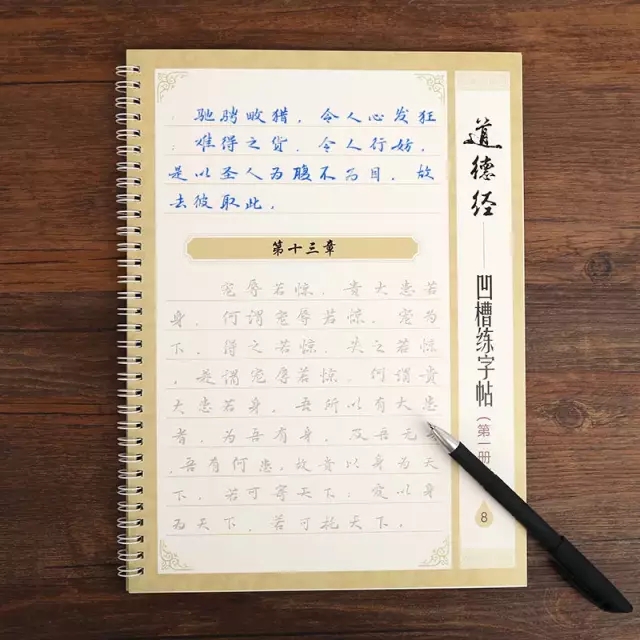 驰骋畋猎，令人心发狂
；难得之货，令人行妨，
是以圣人为腹不为目，故
去彼取此。
第十三章
宠辱若惊，贵大患若
身。何谓宠辱若惊，宠为
下，得之若惊，失之若惊
，是谓宠辱若惊。何谓贵
大患若身，吾所以有大患
者，为吾有身，及吾无身
，吾有何患，故贵以身为天
下，若可寄天下；爱以身
为天下，若可托天下。
道德经——凹槽练字帖（第一册
8